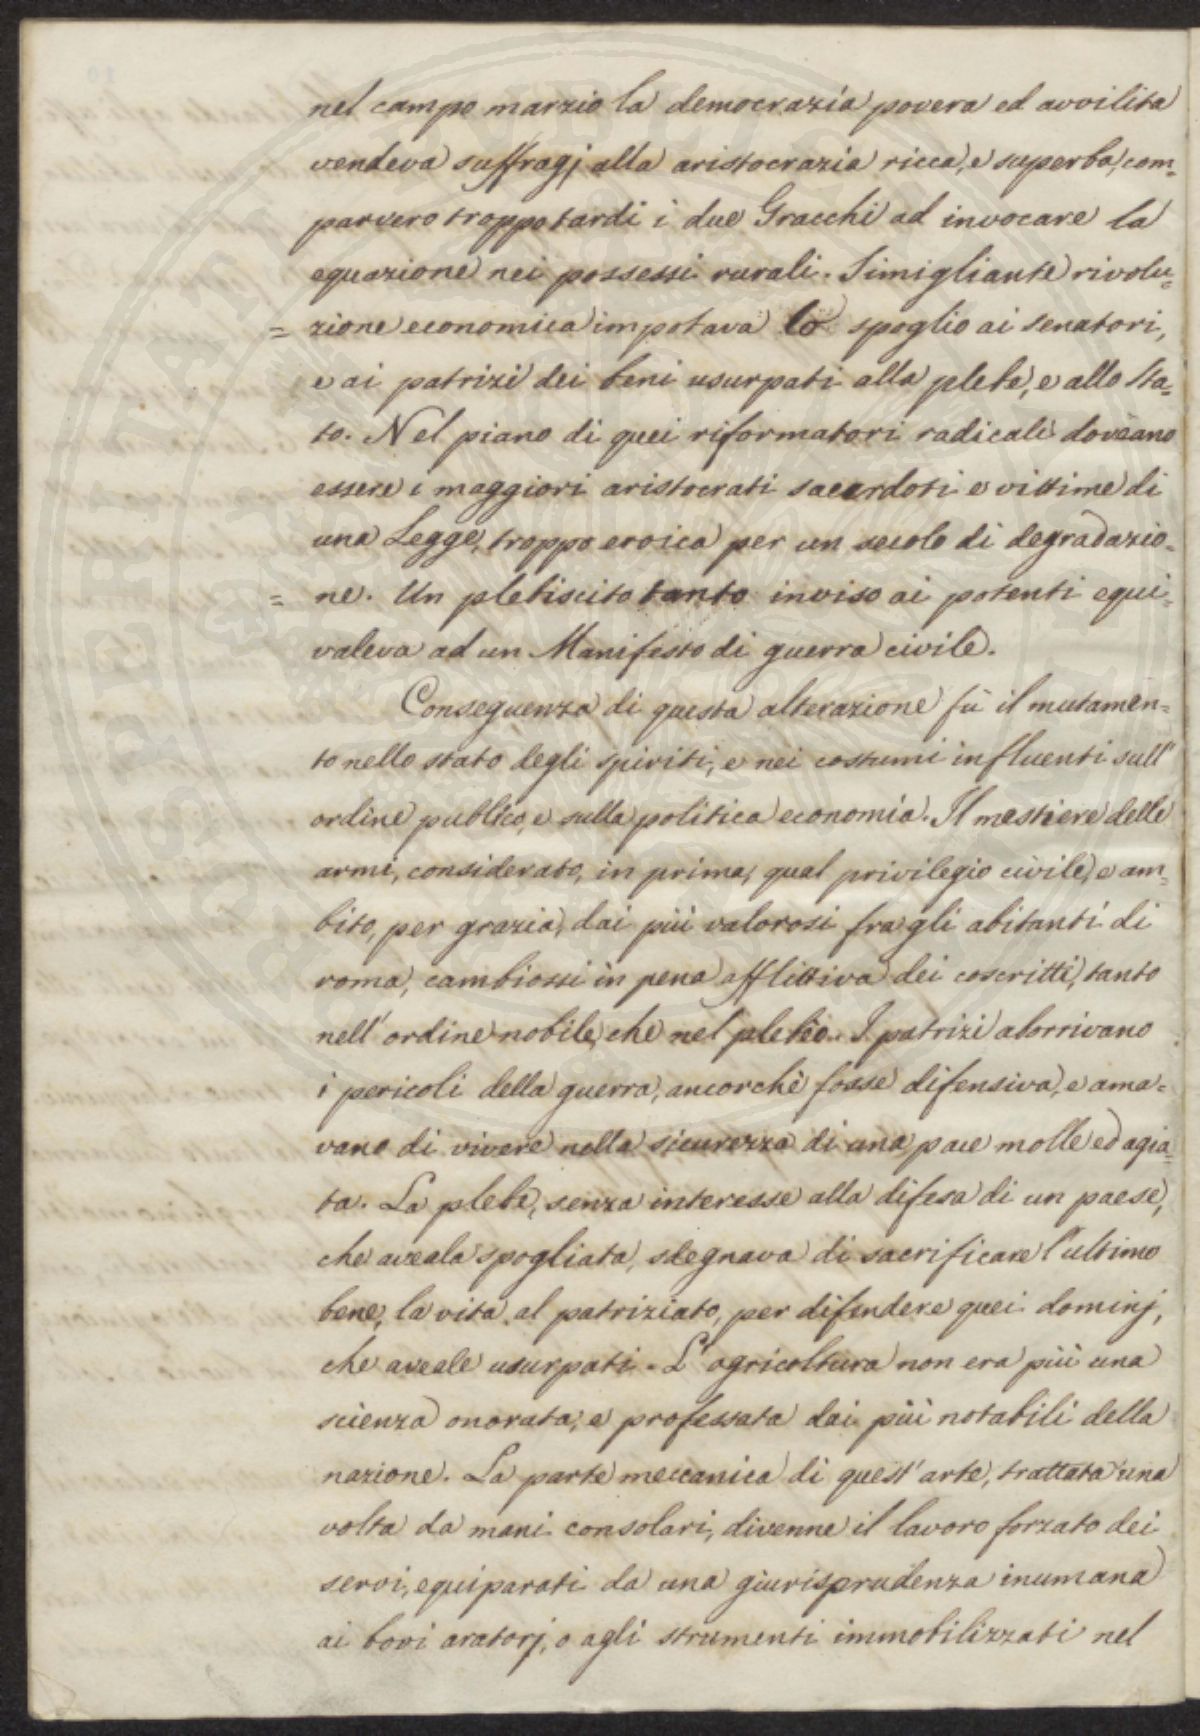 nel campo marzio la democrazia povera ed avvilita
vendeva suffragj alla aristocrazia ricca, e superba, com=
parvero troppo tardi i due Gracchi ad invocare la
equazione nei possessi rurali. Simigliante rivolu=
= zione economica impotava lo spoglio ai senatori,
e ai patrizi dei beni usurpati alla plebe, e allo Sta=
to. Nel piano di quei riformatori radicali dovèano
essere i maggiori aristocrati sacerdoti e vittime di
una Legge, troppo eroica per un secolo di degradazio=
= ne. Un plebiscito tanto inviso ai potenti equi=
valeva ad un Manifesto di guerra civile.
Conseguenza di questa alterazione fù il mutamen=
to nello stato degli spiriti, e nei costumi influenti sull'
ordine publico, e sulla politica economia. Il mestiere delle
armi, considerato, in prima, qual privilegio civile, e am=
bito, per grazia, dai più valorosi fra gli abitanti di
roma, cambiossi in pena afflittiva dei coscritti, tanto
nell' ordine nobile, che nel plebèo. I patrizi aborrivano
i pericoli della guerra, ancorchè fosse difensiva, e ama=
vano di vivere nella sicurezza di una pace molle ed agia=
ta. La plebe, senza interesse alla difesa di un paese,
che aveala spogliata, sdegnava di sacrificare l'ultimo
bene, la vita al patriziato, per difendere quei dominj,
che aveale usurpati. L' agricoltura non era più una
scienza onorata, e professata dai più notabili della
nazione. La parte meccanica di quest' arte, trattata una
volta da mani consolari, divenne il lavoro forzato dei
servi, equiparati da una giurisprudenza inumana
ai bovi aratorj, o agli strumenti immobilizzati nel